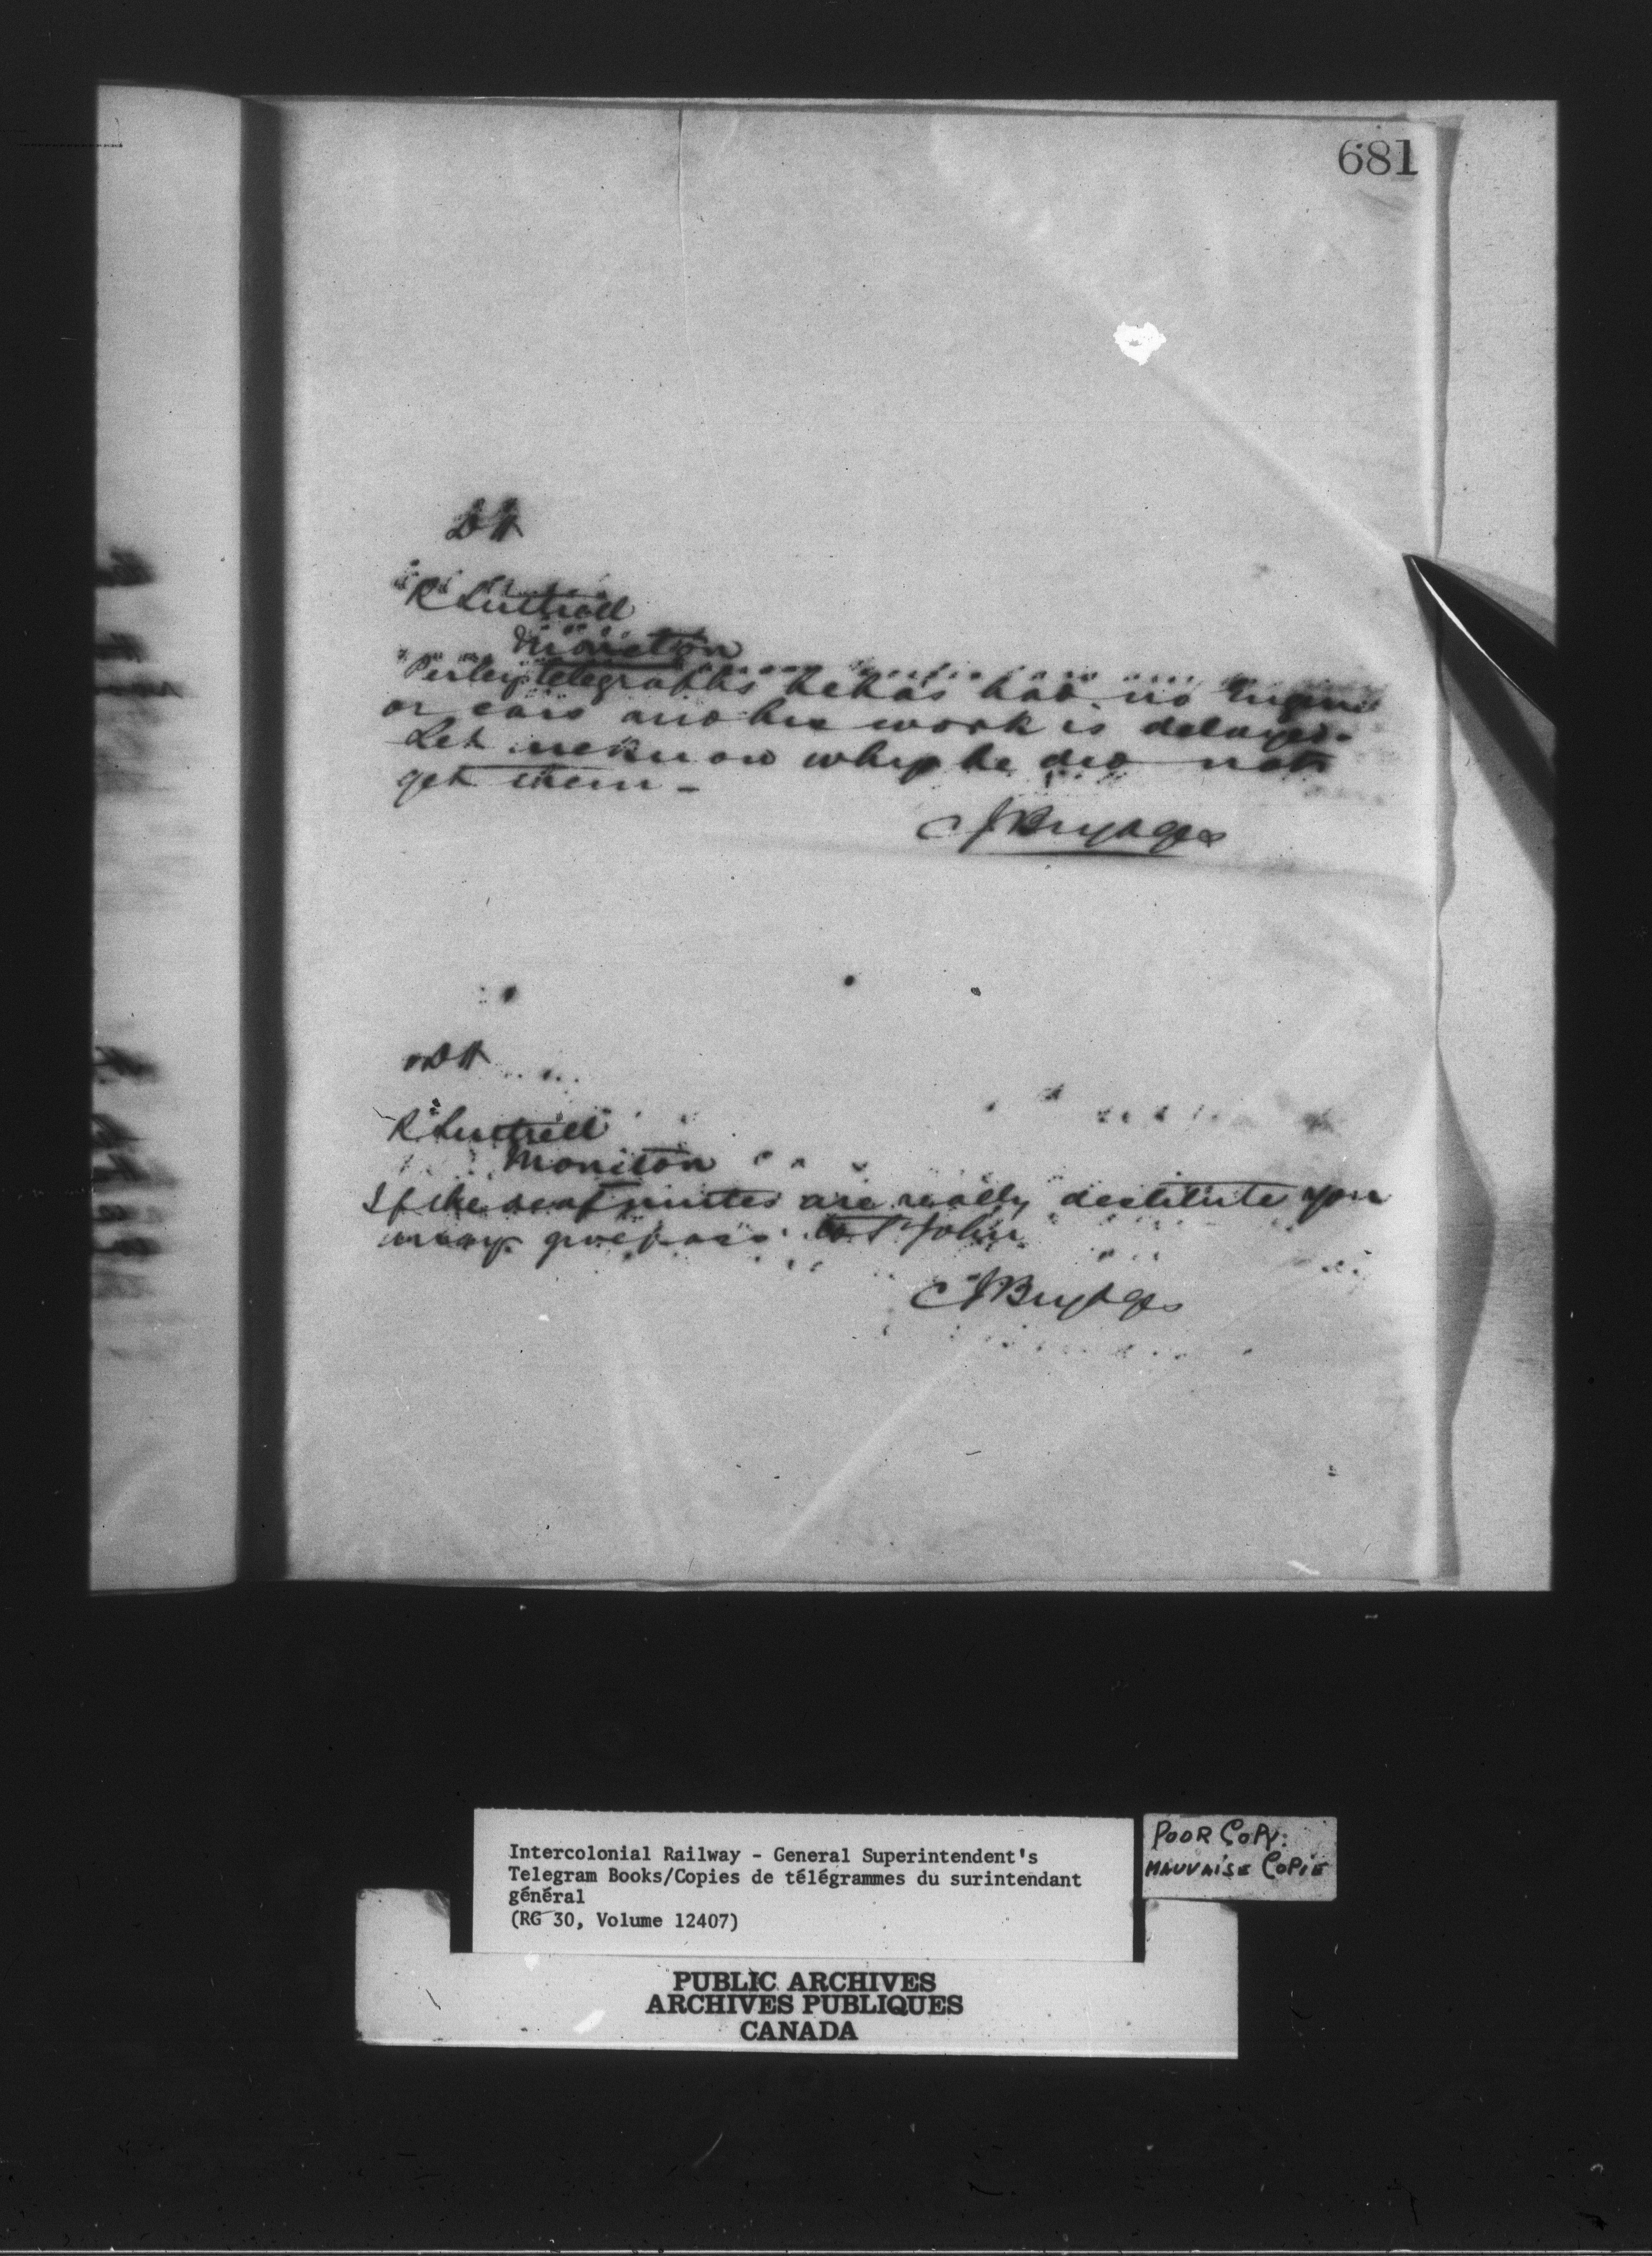 681
DH
R Luttrell
Moncton
Perley telegraphs he has had no engine
or cars and his work is delayed -
Let me know why he did not
get them -
CJ Brydges
DH
R Luttrell
Moncton
If the deaf mutes are really destitute you
may give pass to St John
CJ Brydges
Intercolonial Railway - General Superintendent's
Telegram Books/Copies de télégrammes du surintendant
général
(RG 30, Volume 12407)
POOR COPY.
MAUVAISE COPIE
PUBLIC ARCHIVES
ARCHIVES PUBLIQUES
CANADA